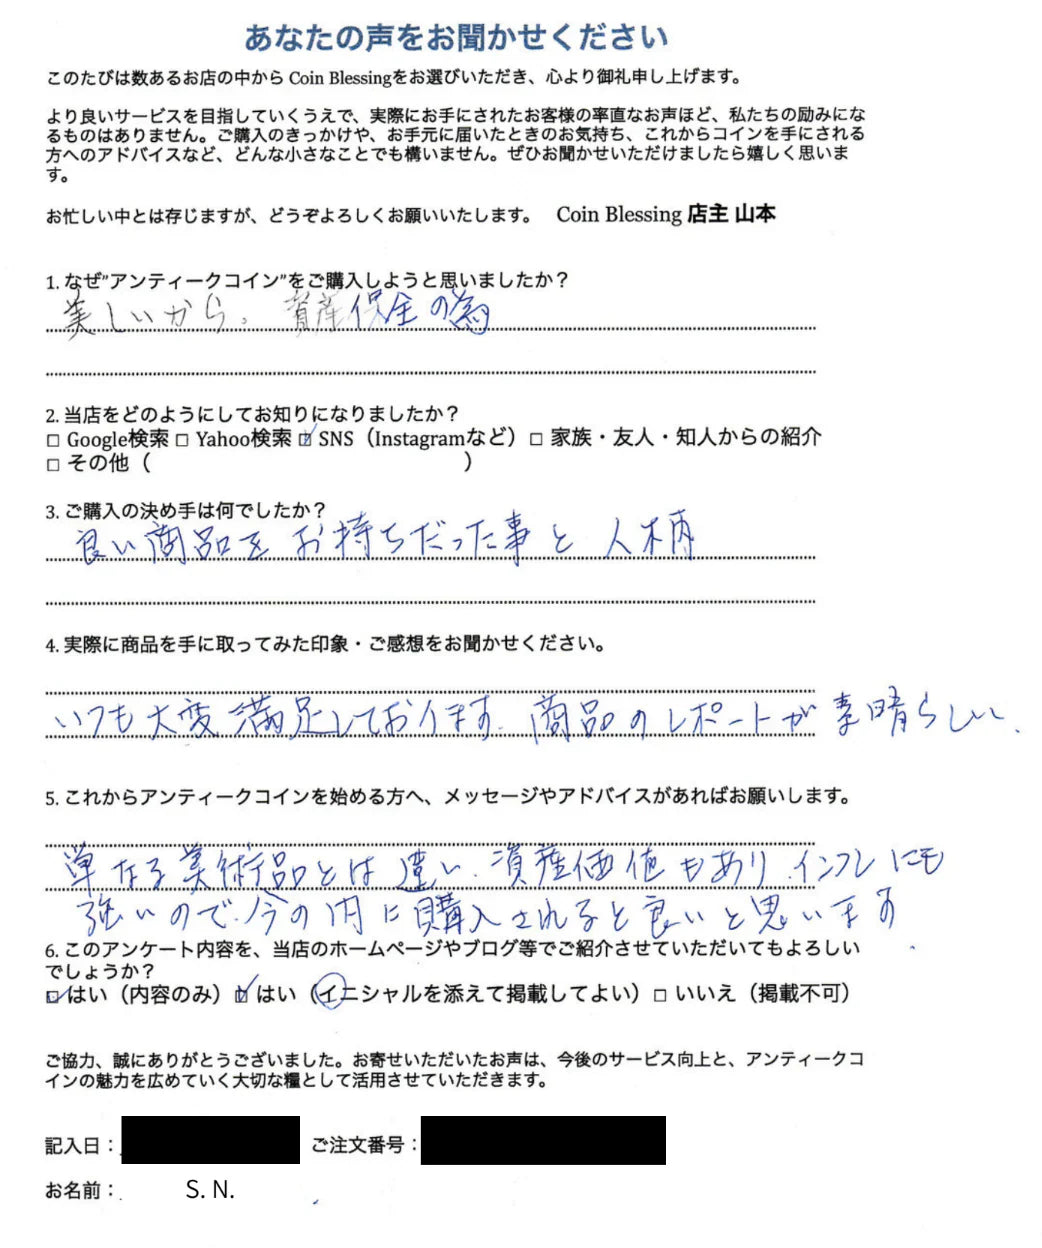 あなたの声をお聞かせください
このたびは数あるお店の中から Coin Blessingをお選びいただき、心より御礼申し上げます。
より良いサービスを目指していくうえで、実際にお手にされたお客様の率直なお声ほど、私たちの励みにな
るものはありません。ご購入のきっかけや、お手元に届いたときのお気持ち、これからコインを手にされる
方へのアドバイスなど、どんな小さなことでも構いません。ぜひお聞かせいただけましたら嬉しく思いま
す。
お忙しい中とは存じますが、どうぞよろしくお願いいたします。 Coin Blessing 店主 山本
1. なぜ"アンティークコイン"をご購入しようと思いましたか？
美しいから。資産保全の為
2. 当店をどのようにしてお知りになりましたか？
□ Google検索 □ Yahoo検索 ☑ SNS（Instagramなど）□ 家族・友人・知人からの紹介
□ その他（ ）
3. ご購入の決め手は何でしたか？
良い商品をお持ちだった事と人柄
4. 実際に商品を手に取ってみた印象・ご感想をお聞かせください。
いつも大変満足しております。商品のレポートが素晴らしい。
5. これからアンティークコインを始める方へ、メッセージやアドバイスがあればお願いします。
単なる美術品とは違い、資産価値もあり、インフレにも
強いので、今の内に購入されると良いと思います。
6. このアンケート内容を、当店のホームページやブログ等でご紹介させていただいてもよろしい
でしょうか？
☑ はい（内容のみ）☑ はい（イニシャルを添えて掲載してよい）□ いいえ（掲載不可）
ご協力、誠にありがとうございました。お寄せいただいたお声は、今後のサービス向上と、アンティークコ
インの魅力を広めていく大切な糧として活用させていただきます。
記入日： ご注文番号：
お名前： S. N.